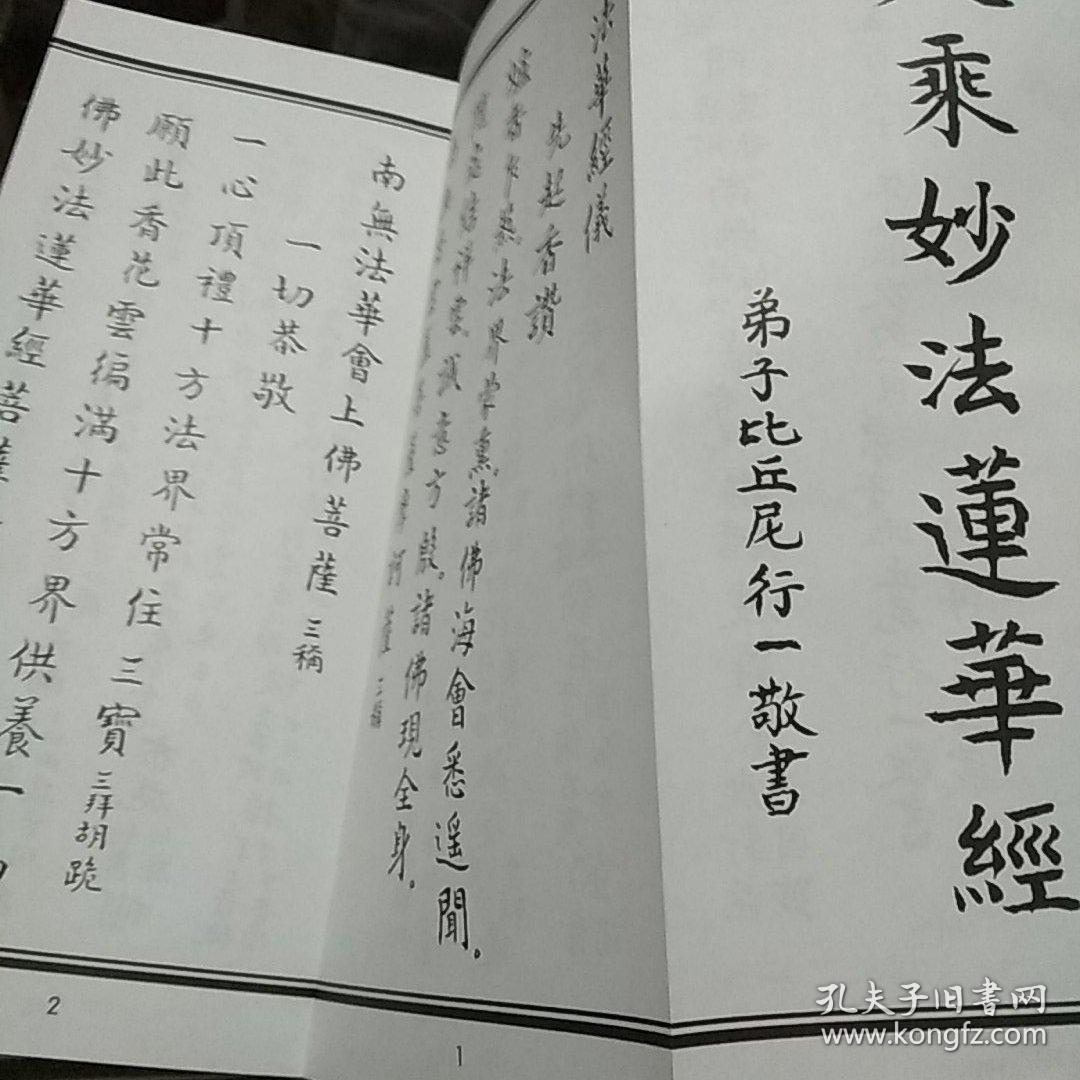 乘妙法蓮華經
弟子比丘尼行一敬書
法華經儀
先起香讚
香乍爇法界蒙熏諸佛海會悉遥聞。
祥雲誠意方殷。諸佛現全身。
三稱
南無法華會上佛菩薩 三稱
一切恭敬
一心頂禮十方法界常住三寶 三拜胡跪
願此香花雲徧滿十方界供養一
佛妙法蓮華經菩薩
1
2
孔夫子旧书网
www.kongfz.com